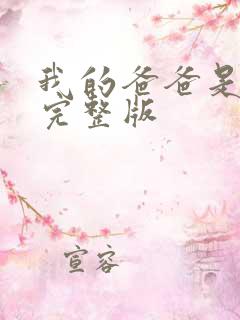 我的爸爸是
完整版
宣容